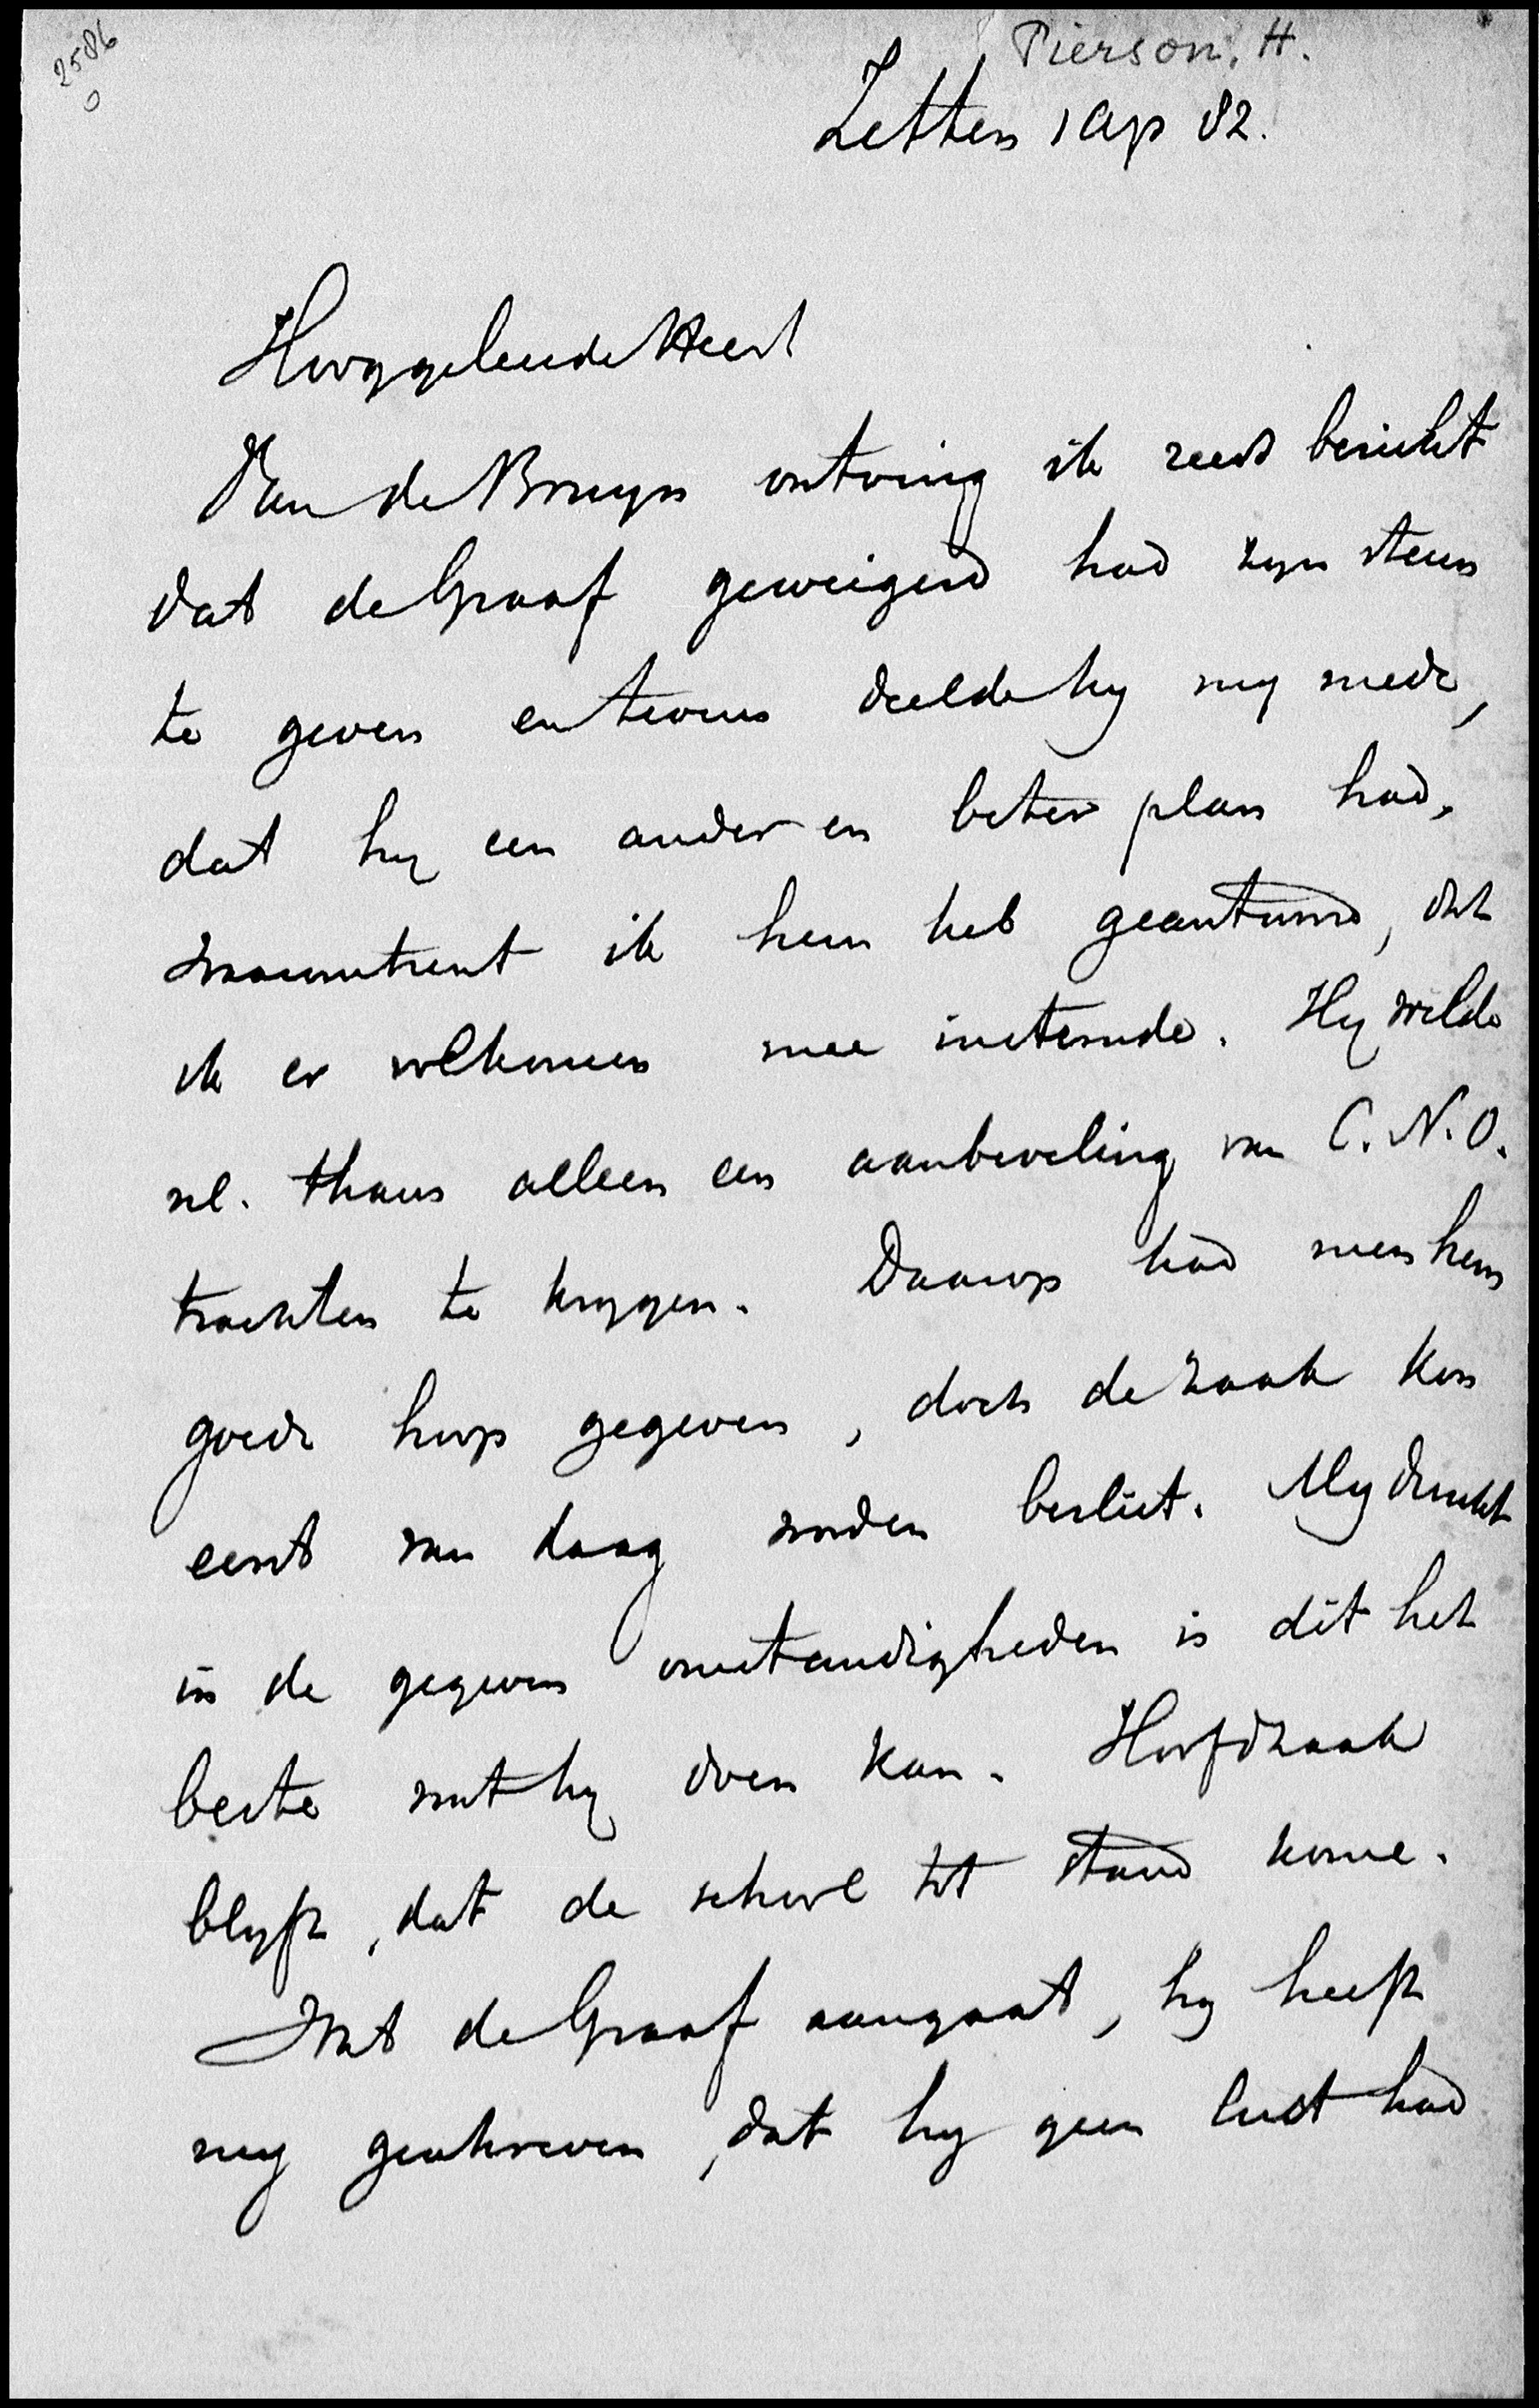 2586
0
Pierson, H.
Zetten 1 Ap 82.
Hooggeleerde Heer!
Van de Bruyn ontving ik reeds bericht
dat de Graaf geweigerd had zyn steun
te geven en tevens deelde hy my mede,
dat hy een ander en beter plan had,
waaromtrent ik hem heb geantwoord, dat
ik er volkomen mee instemde. Hy wilde
nl. thans alleen een aanbeveling van C.N.O.
trachten te krygen. Daarop had men hem
goede hoop gegeven, doch de zaak kon
eerst van daag worden beslist. My dunkt
in de gegeven omstandigheden is dit het
beste wat hy doen kan. Hoofdzaak
blyft, dat de school tot stand kome.
Wat de Graaf aangaat, hy heeft
my geschreven, dat hy geen lust had